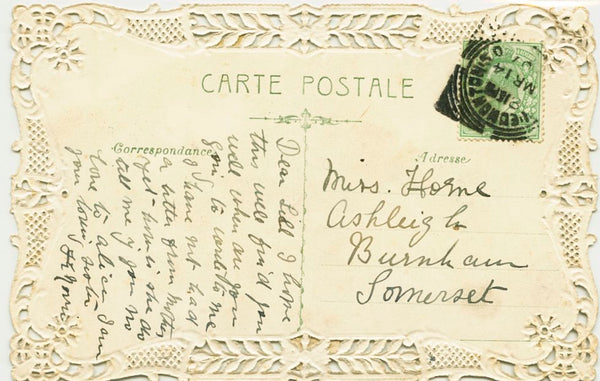 CARTE POSTALE
Correspondance
Adresse
Dear Lill I hope
this will find you
well when are you
to write to me
I have not had
a letter from Mother
yet how is she do
tell me if you no
love to alice I am
your lovin sister
Miss. Horne
Ashleigh
Burnham
Somerset
MR 14